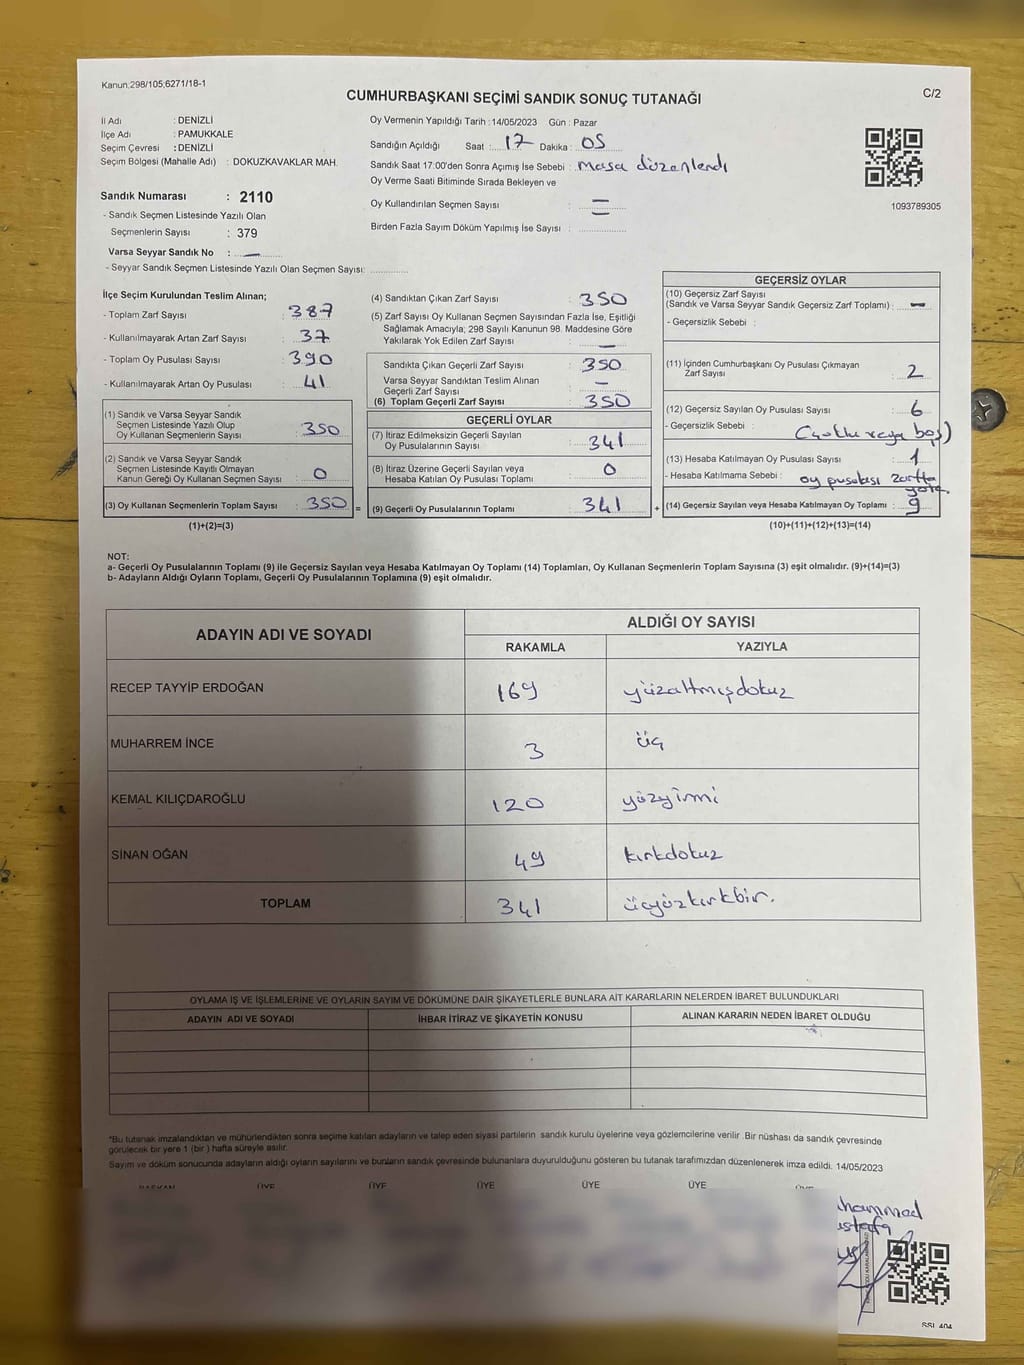 Kanun;298/105;6271/18-1
C/2
CUMHURBAŞKANI SEÇİMİ SANDIK SONUÇ TUTANAĞI
İl Adı : DENİZLİ
İlçe Adı : PAMUKKALE
Seçim Çevresi : DENİZLİ
Seçim Bölgesi (Mahalle Adı) : DOKUZKAVAKLAR MAH.
Sandık Numarası : 2110
- Sandık Seçmen Listesinde Yazılı Olan
Seçmenlerin Sayısı : 379
Varsa Seyyar Sandık No : —
- Seyyar Sandık Seçmen Listesinde Yazılı Olan Seçmen Sayısı:
Oy Vermenin Yapıldığı Tarih : 14/05/2023 Gün : Pazar
Sandığın Açıldığı Saat : 17 Dakika : 05
Sandık Saat 17:00'den Sonra Açımış İse Sebebi : masa düzenlendi
Oy Verme Saati Bitiminde Sırada Bekleyen ve
Oy Kullandırılan Seçmen Sayısı : =
Birden Fazla Sayım Döküm Yapılmış İse Sayısı :
1093789305
İlçe Seçim Kurulundan Teslim Alınan;
- Toplam Zarf Sayısı : 387
- Kullanılmayarak Artan Zarf Sayısı : 37
- Toplam Oy Pusulası Sayısı : 390
- Kullanılmayarak Artan Oy Pusulası : 41
(1) Sandık ve Varsa Seyyar Sandık
Seçmen Listesinde Yazılı Olup
Oy Kullanan Seçmenlerin Sayısı : 350
(2) Sandık ve Varsa Seyyar Sandık
Seçmen Listesinde Kayıtlı Olmayan
Kanun Gereği Oy Kullanan Seçmen Sayısı : 0
(3) Oy Kullanan Seçmenlerin Toplam Sayısı : 350 =
(1)+(2)=(3)
(4) Sandıktan Çıkan Zarf Sayısı : 350
(5) Zarf Sayısı Oy Kullanan Seçmen Sayısından Fazla İse, Eşitliği
Sağlamak Amacıyla; 298 Sayılı Kanunun 98. Maddesine Göre
Yakılarak Yok Edilen Zarf Sayısı : —
Sandıkta Çıkan Geçerli Zarf Sayısı : 350
Varsa Seyyar Sandıktan Teslim Alınan
Geçerli Zarf Sayısı : —
(6) Toplam Geçerli Zarf Sayısı : 350
GEÇERLİ OYLAR
(7) İtiraz Edilmeksizin Geçerli Sayılan
Oy Pusulalarının Sayısı : 341
(8) İtiraz Üzerine Geçerli Sayılan veya
Hesaba Katılan Oy Pusulası Toplamı : 0
(9) Geçerli Oy Pusulalarının Toplamı : 341 +
GEÇERSİZ OYLAR
(10) Geçersiz Zarf Sayısı
(Sandık ve Varsa Seyyar Sandık Geçersiz Zarf Toplamı) : —
- Geçersizlik Sebebi :
(11) İçinden Cumhurbaşkanı Oy Pusulası Çıkmayan
Zarf Sayısı : 2
(12) Geçersiz Sayılan Oy Pusulası Sayısı : 6
- Geçersizlik Sebebi : veya boş)
(13) Hesaba Katılmayan Oy Pusulası Sayısı : 1
- Hesaba Katılmama Sebebi : oy pusulası zarfta
(14) Geçersiz Sayılan veya Hesaba Katılmayan Oy Toplamı : 9
(10)+(11)+(12)+(13)=(14)
NOT:
a- Geçerli Oy Pusulalarının Toplamı (9) ile Geçersiz Sayılan veya Hesaba Katılmayan Oy Toplamı (14) Toplamları, Oy Kullanan Seçmenlerin Toplam Sayısına (3) eşit olmalıdır. (9)+(14)=(3)
b- Adayların Aldığı Oyların Toplamı, Geçerli Oy Pusulalarının Toplamına (9) eşit olmalıdır.
ADAYIN ADI VE SOYADI
ALDIĞI OY SAYISI
RAKAMLA YAZIYLA
RECEP TAYYİP ERDOĞAN 169 yüzaltmışdokuz
MUHARREM İNCE 3 üç
KEMAL KILIÇDAROĞLU 120 yüzyirmi
SİNAN OĞAN 49 kırkdokuz
TOPLAM 341 üçyüzkırkbir.
OYLAMA İŞ VE İŞLEMLERİNE VE OYLARIN SAYIM VE DÖKÜMÜNE DAİR ŞİKAYETLERLE BUNLARA AİT KARARLARIN NELERDEN İBARET BULUNDUKLARI
ADAYIN ADI VE SOYADI İHBAR İTİRAZ VE ŞİKAYETİN KONUSU ALINAN KARARIN NEDEN İBARET OLDUĞU
*Bu tutanak imzalandıktan ve mühürlendikten sonra seçime katılan adayların ve talep eden siyasi partilerin sandık kurulu üyelerine veya gözlemcilerine verilir. Bir nüshası da sandık çevresinde
görülecek bir yere 1 (bir) hafta süreyle asılır.
Sayım ve döküm sonucunda adayların aldığı oyların sayılarını ve bunların sandık çevresinde bulunanlara duyurulduğunu gösteren bu tutanak tarafımızdan düzenlenerek imza edildi. 14/05/2023
BAŞKAN ÜYE ÜYE ÜYE ÜYE ÜYE ÜYE
hammed
ustafa